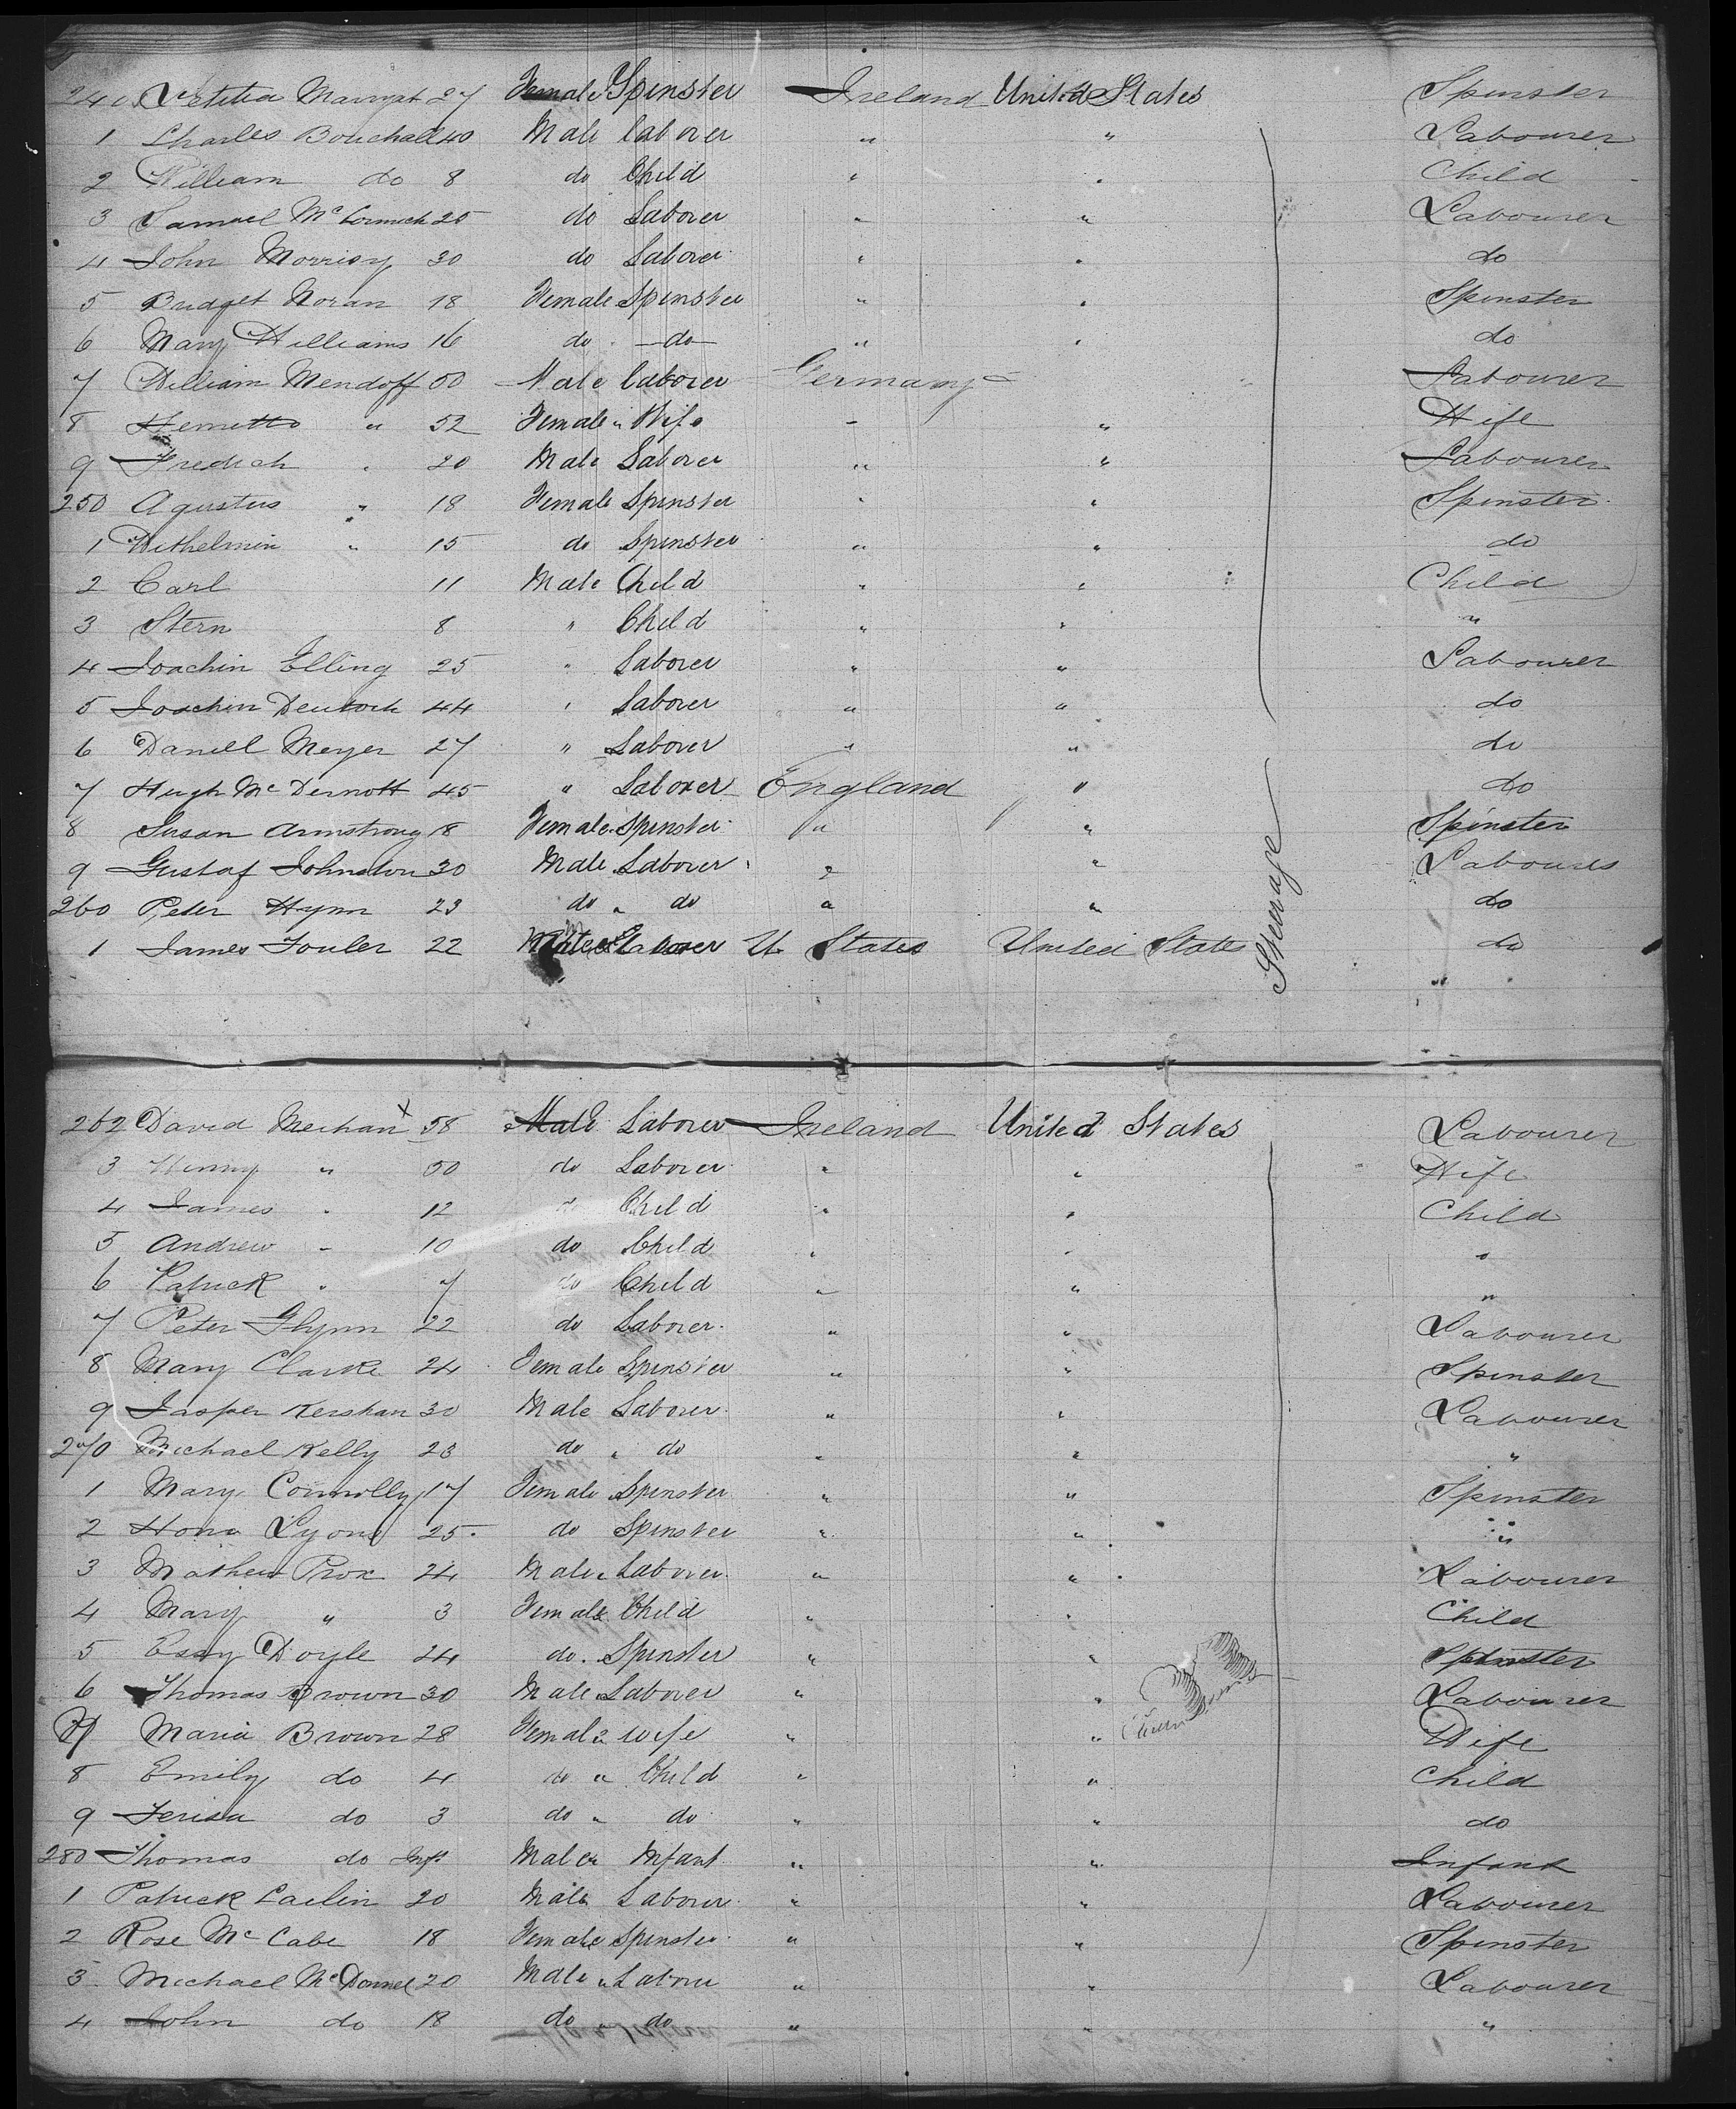 240 Letitia Marryat 27 Female Spinster Ireland United States Spinster
1 Charles Bouchall 40 Male Laborer " " Labourer
2 William do 8 do Child " " Child
3 Samuel McCormick 25 do Laborer " " Labourer
4 John Morrisy 30 do Laborer " " do
5 Bridget Horan 18 Female Spinster " " Spinster
6 Mary Williams 16 do do " " do
7 William Mendoff 50 Male Laborer Germany " Labourer
8 " 52 Female " Wife " " Wife
9 Fredich " 20 Male Laborer " " Labourer
250 Agustus " 18 Female Spinster " " Spinster
1 Withelmin " 15 do Spinster " " do
2 Carl 11 Male Child " " Child
3 Stern 8 " Child " " "
4 Joachin Elling 25 " Laborer " " Labourer
5 Joachin 44 " Laborer " " do
6 Daniell Meyer 27 " Laborer " " do
7 Hugh McDermott 45 " Laborer England " do
8 Susan Armstrong 18 Female Spinster " " Spinster
9 Gustaf Johnston 30 Male Laborer " " Labourer
260 Peter Hynn 23 do " do " " do
1 James Fouler 22 Male Laborer U States United States do
Steerage
262 David Meehan x 58 Male Laborer Ireland United States Labourer
3 Winny " 50 do Laborer " " Wife
4 James " 12 do Child " " Child
5 Andrew " 10 do Child " " "
6 Patrick " 7 do Child " " "
7 Peter Glynn 22 do Laborer " " Labourer
8 Mary Clarke 24 Female Spinster " " Spinster
9 Jasper Kershan 30 Male Laborer " " Labourer
270 Michael Kelly 23 do " do " " "
1 Mary Connolly 17 Female Spinster " " Spinster
2 Hona Lyons 25 do Spinster " " "
3 Mathew Prox 24 Male " Laborer " " Labourer
4 Mary " 3 Female Child " " Child
5 Essy Doyle 24 do Spinster " " Spinster
6 Thomas Brown 30 Male Laborer " " Labourer
7 Maria Brown 28 Female wife " " Wife
8 Emily do 4 do " Child " " Child
9 Terisa do 3 do " do " " do
280 Thomas do Inft Male " Infant " " Infant
1 Patrick Carlin 20 Male Laborer " " Labourer
2 Rose McCabe 18 Female Spinster " " Spinster
3 Michael McDonnel 20 Male " Laborer " " Labourer
4 John do 18 do " do " " "